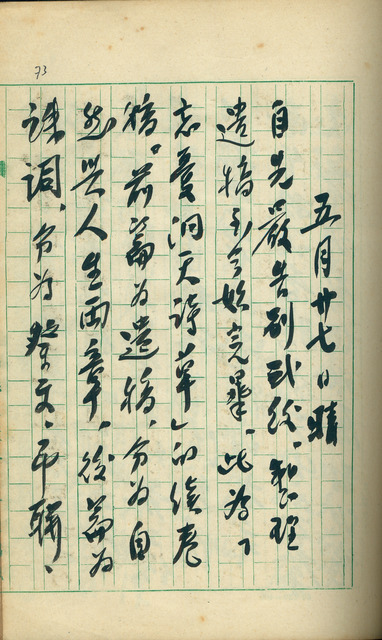 73
五月廿七日 晴
自先嚴告別式後、整理
遺稿至今始完畢、此為「
忘憂洞天詩草」的續卷
稿。前篇為遺稿、分為自
然與人生兩章、後篇為
諫詞、分為祭文、弔聯、